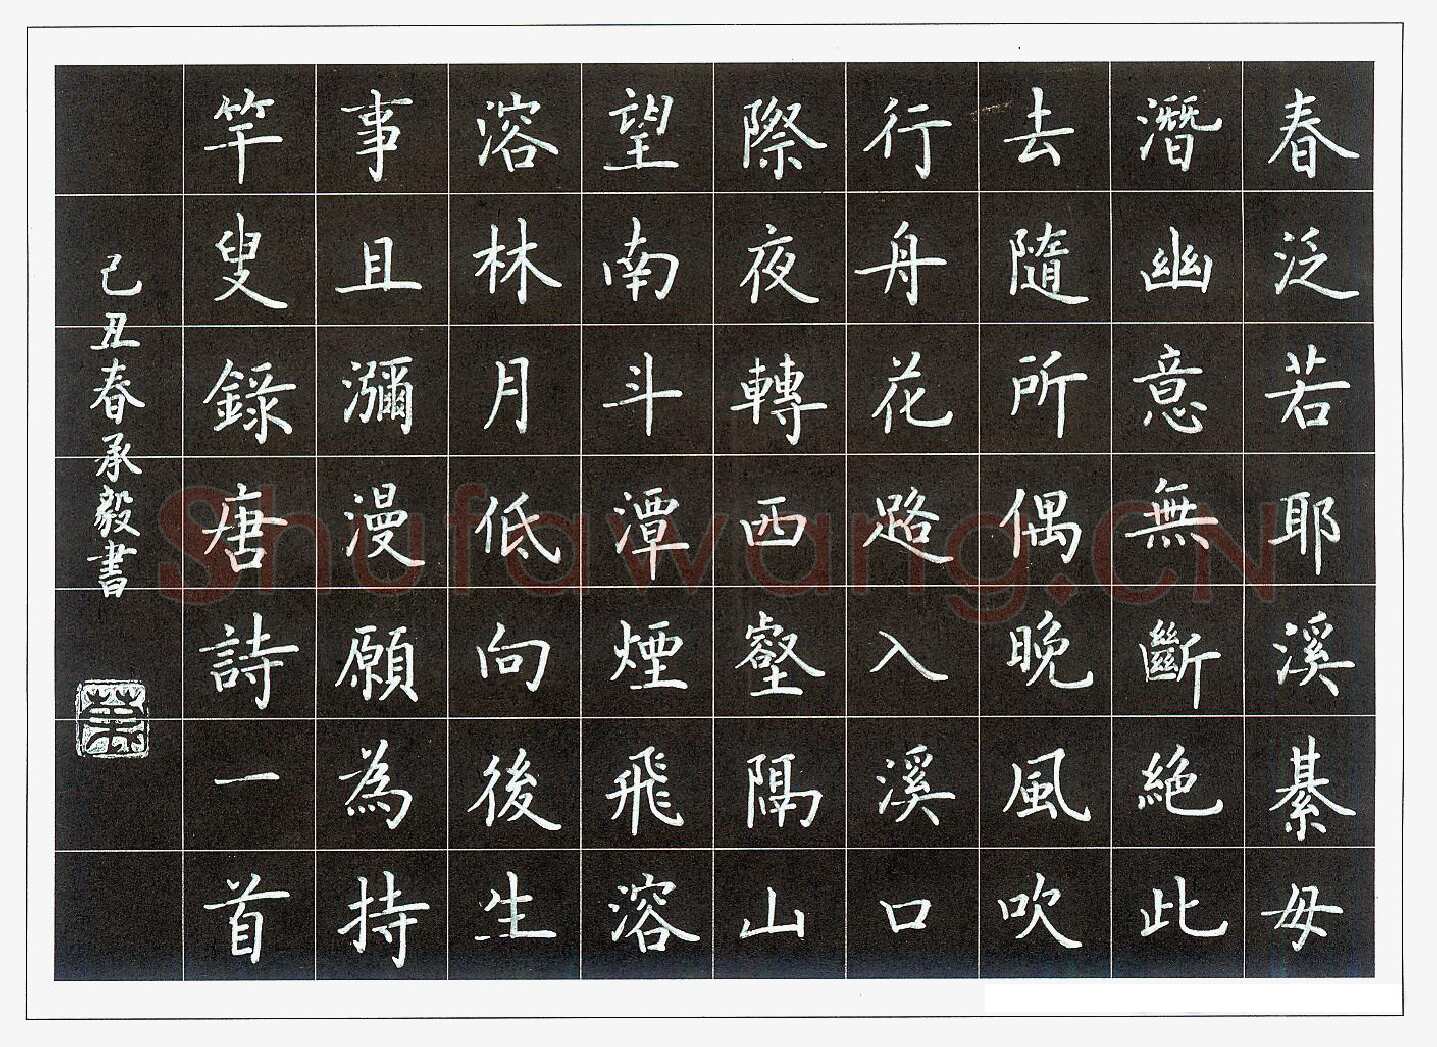 春泛若耶溪綦毋
潛幽意無斷絕此
去隨所偶晚風吹
行舟花路入溪口
際夜轉西壑隔山
望南斗潭煙飛溶
溶林月低向後生
事且瀰漫願為持
竿叟錄唐詩一首
己丑春承毅書
Shufawang.CN